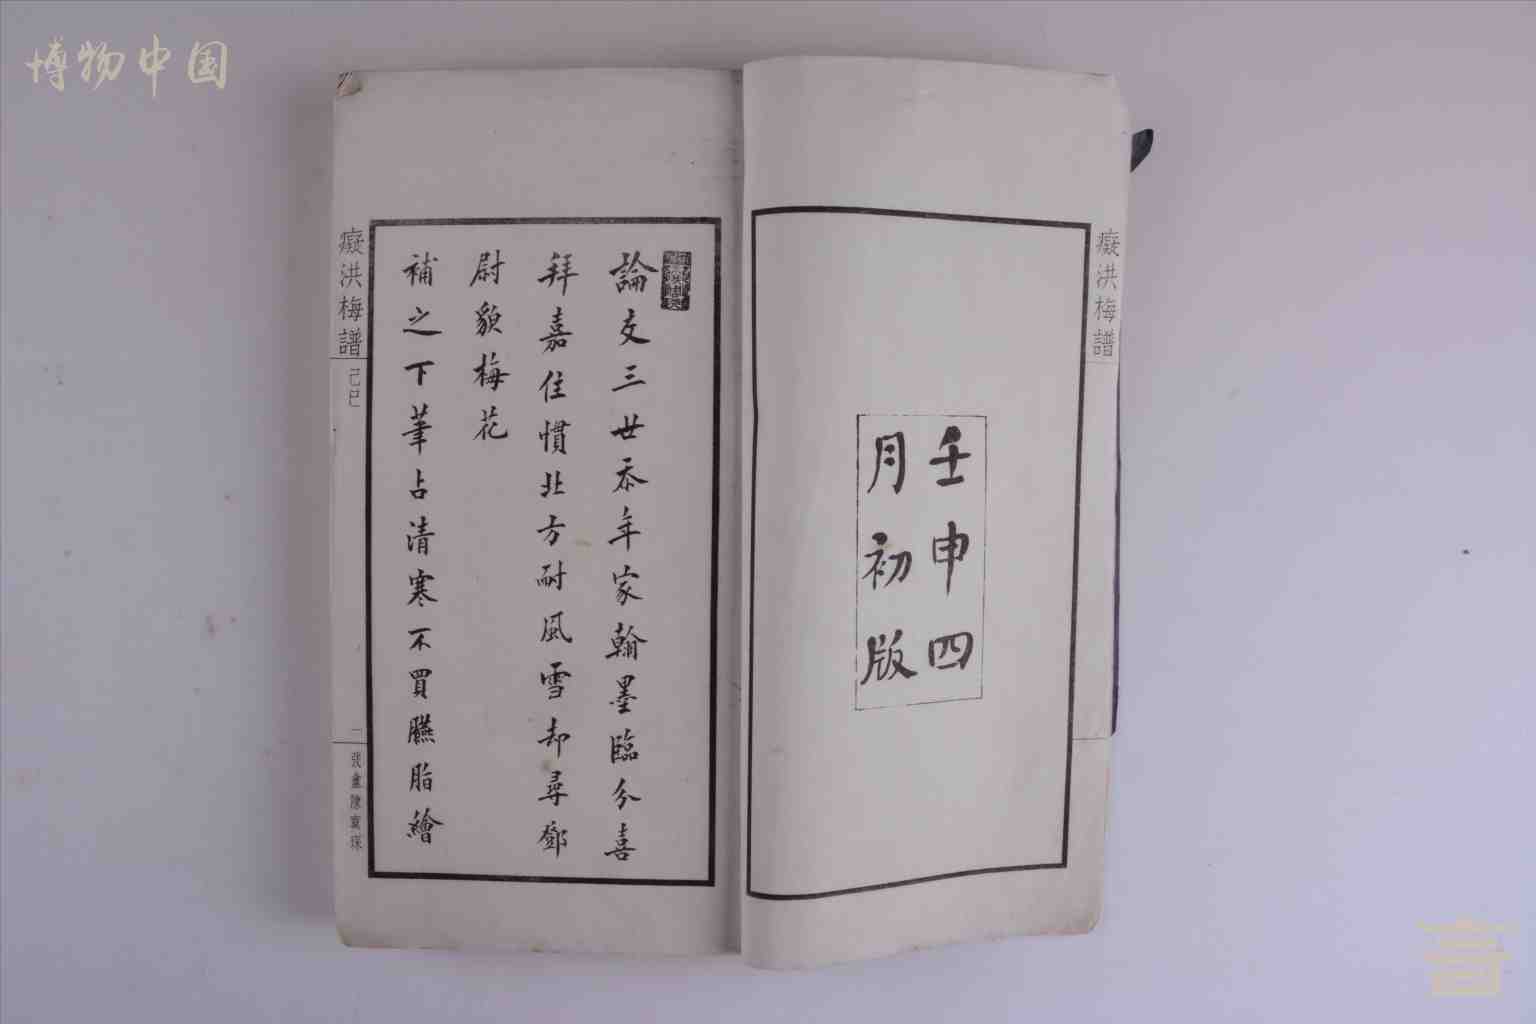 博物中国
癡洪梅譜
壬申四
月初版
論文三世忝年家翰墨臨分喜
拜嘉住慣北方耐風雪却尋鄧
尉貌梅花
補之下筆占清寒不買臙脂繪
癡洪梅譜
己巳
一
弢盦陳寶琛